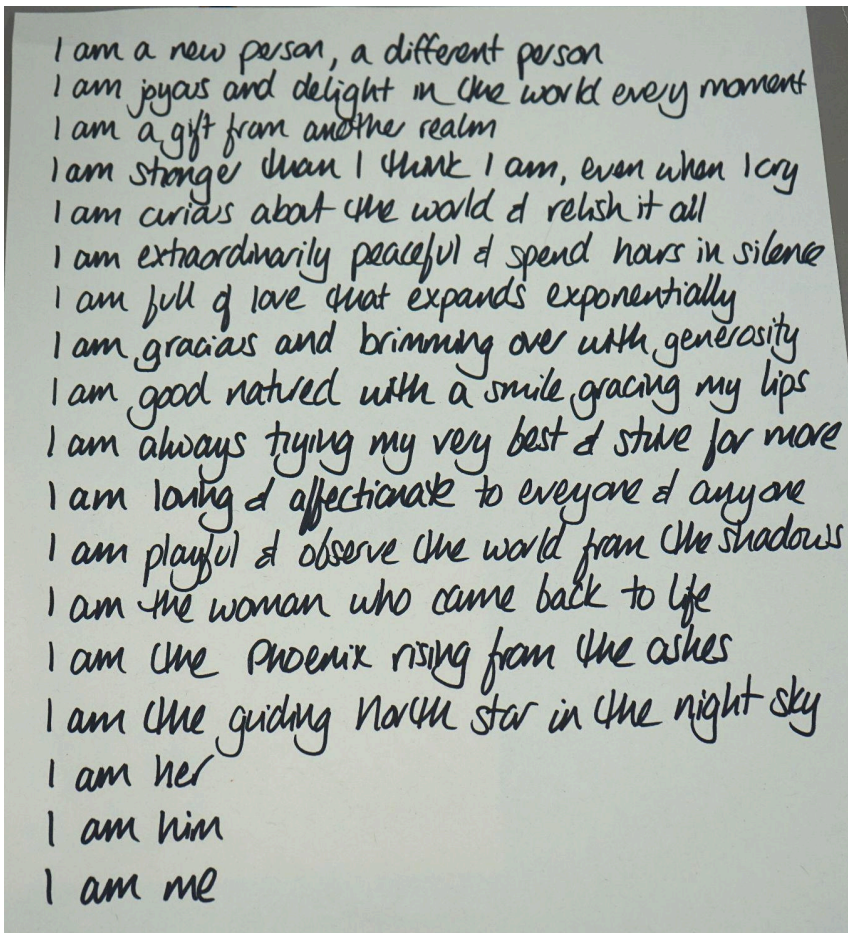 I am a new person, a different person
I am joyous and delight in the world every moment
I am a gift from another realm
I am stronger than I think I am, even when I cry
I am curious about the world & relish it all
I am extraordinarily peaceful & spend hours in silence
I am full of love that expands exponentially
I am gracious and brimming over with generosity
I am good natured with a smile gracing my lips
I am always trying my very best & strive for more
I am loving & affectionate to everyone & anyone
I am playful & observe the world from the shadows
I am the woman who came back to life
I am the Phoenix rising from the ashes
I am the guiding North star in the night sky
I am her
I am him
I am me